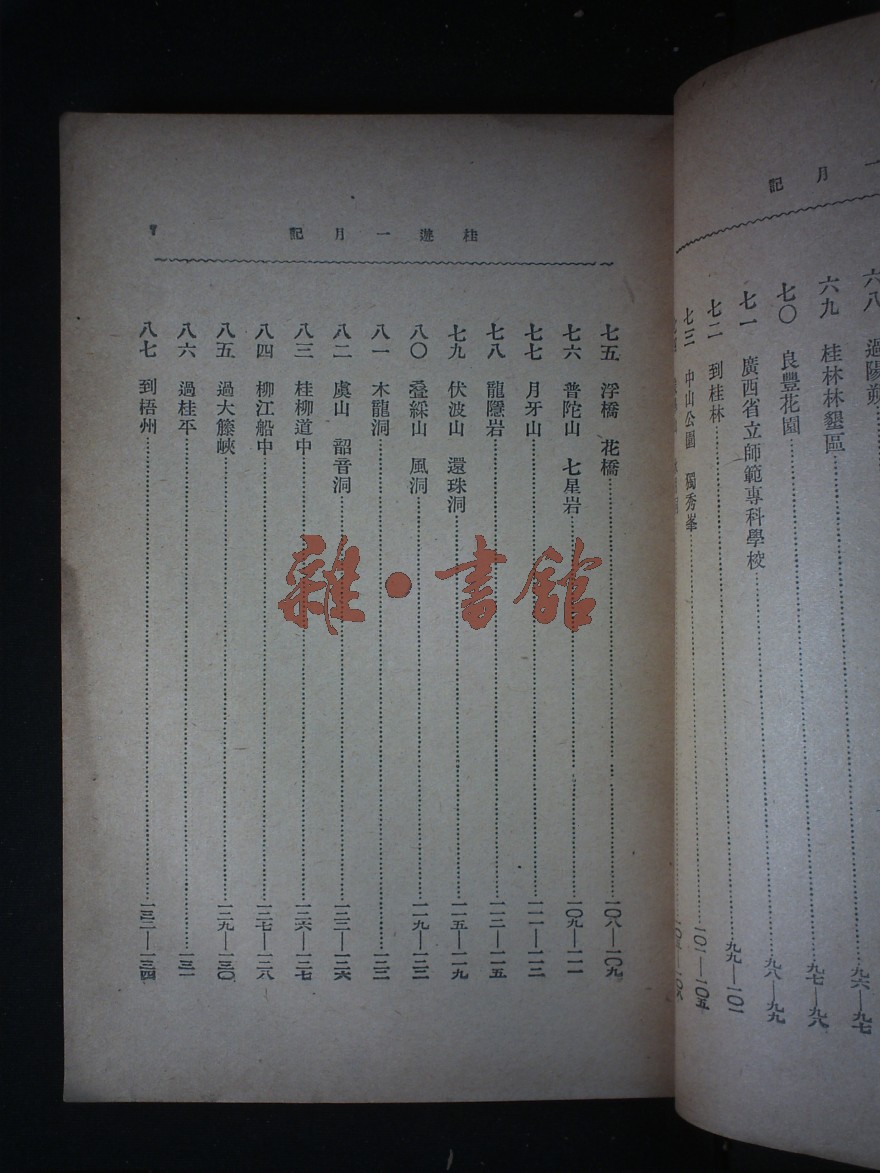 一月記
六八 過陽朔
六九 桂林林墾區 九六—九七
七〇 良豐花園 九七—九八
七一 廣西省立師範專科學校 九八—九九
七二 到桂林 九九—一〇一
七三 中山公園 獨秀峯 一〇一—一〇五
桂遊一月記
七五 浮橋 花橋 一〇八—一〇九
七六 普陀山 七星岩 一〇九—一一一
七七 月牙山 一一一—一一三
七八 龍隱岩 一一三—一一五
七九 伏波山 還珠洞 一一五—一一九
八〇 叠綵山 風洞 一一九—一二二
八一 木龍洞 一二二
八二 虞山 韶音洞 一二三—一二六
八三 桂柳道中 一二六—一二七
八四 柳江船中 一二七—一二八
八五 過大籐峽 一二九—一三〇
八六 過桂平 一三一
八七 到梧州 一三二—一三四
雜·書館